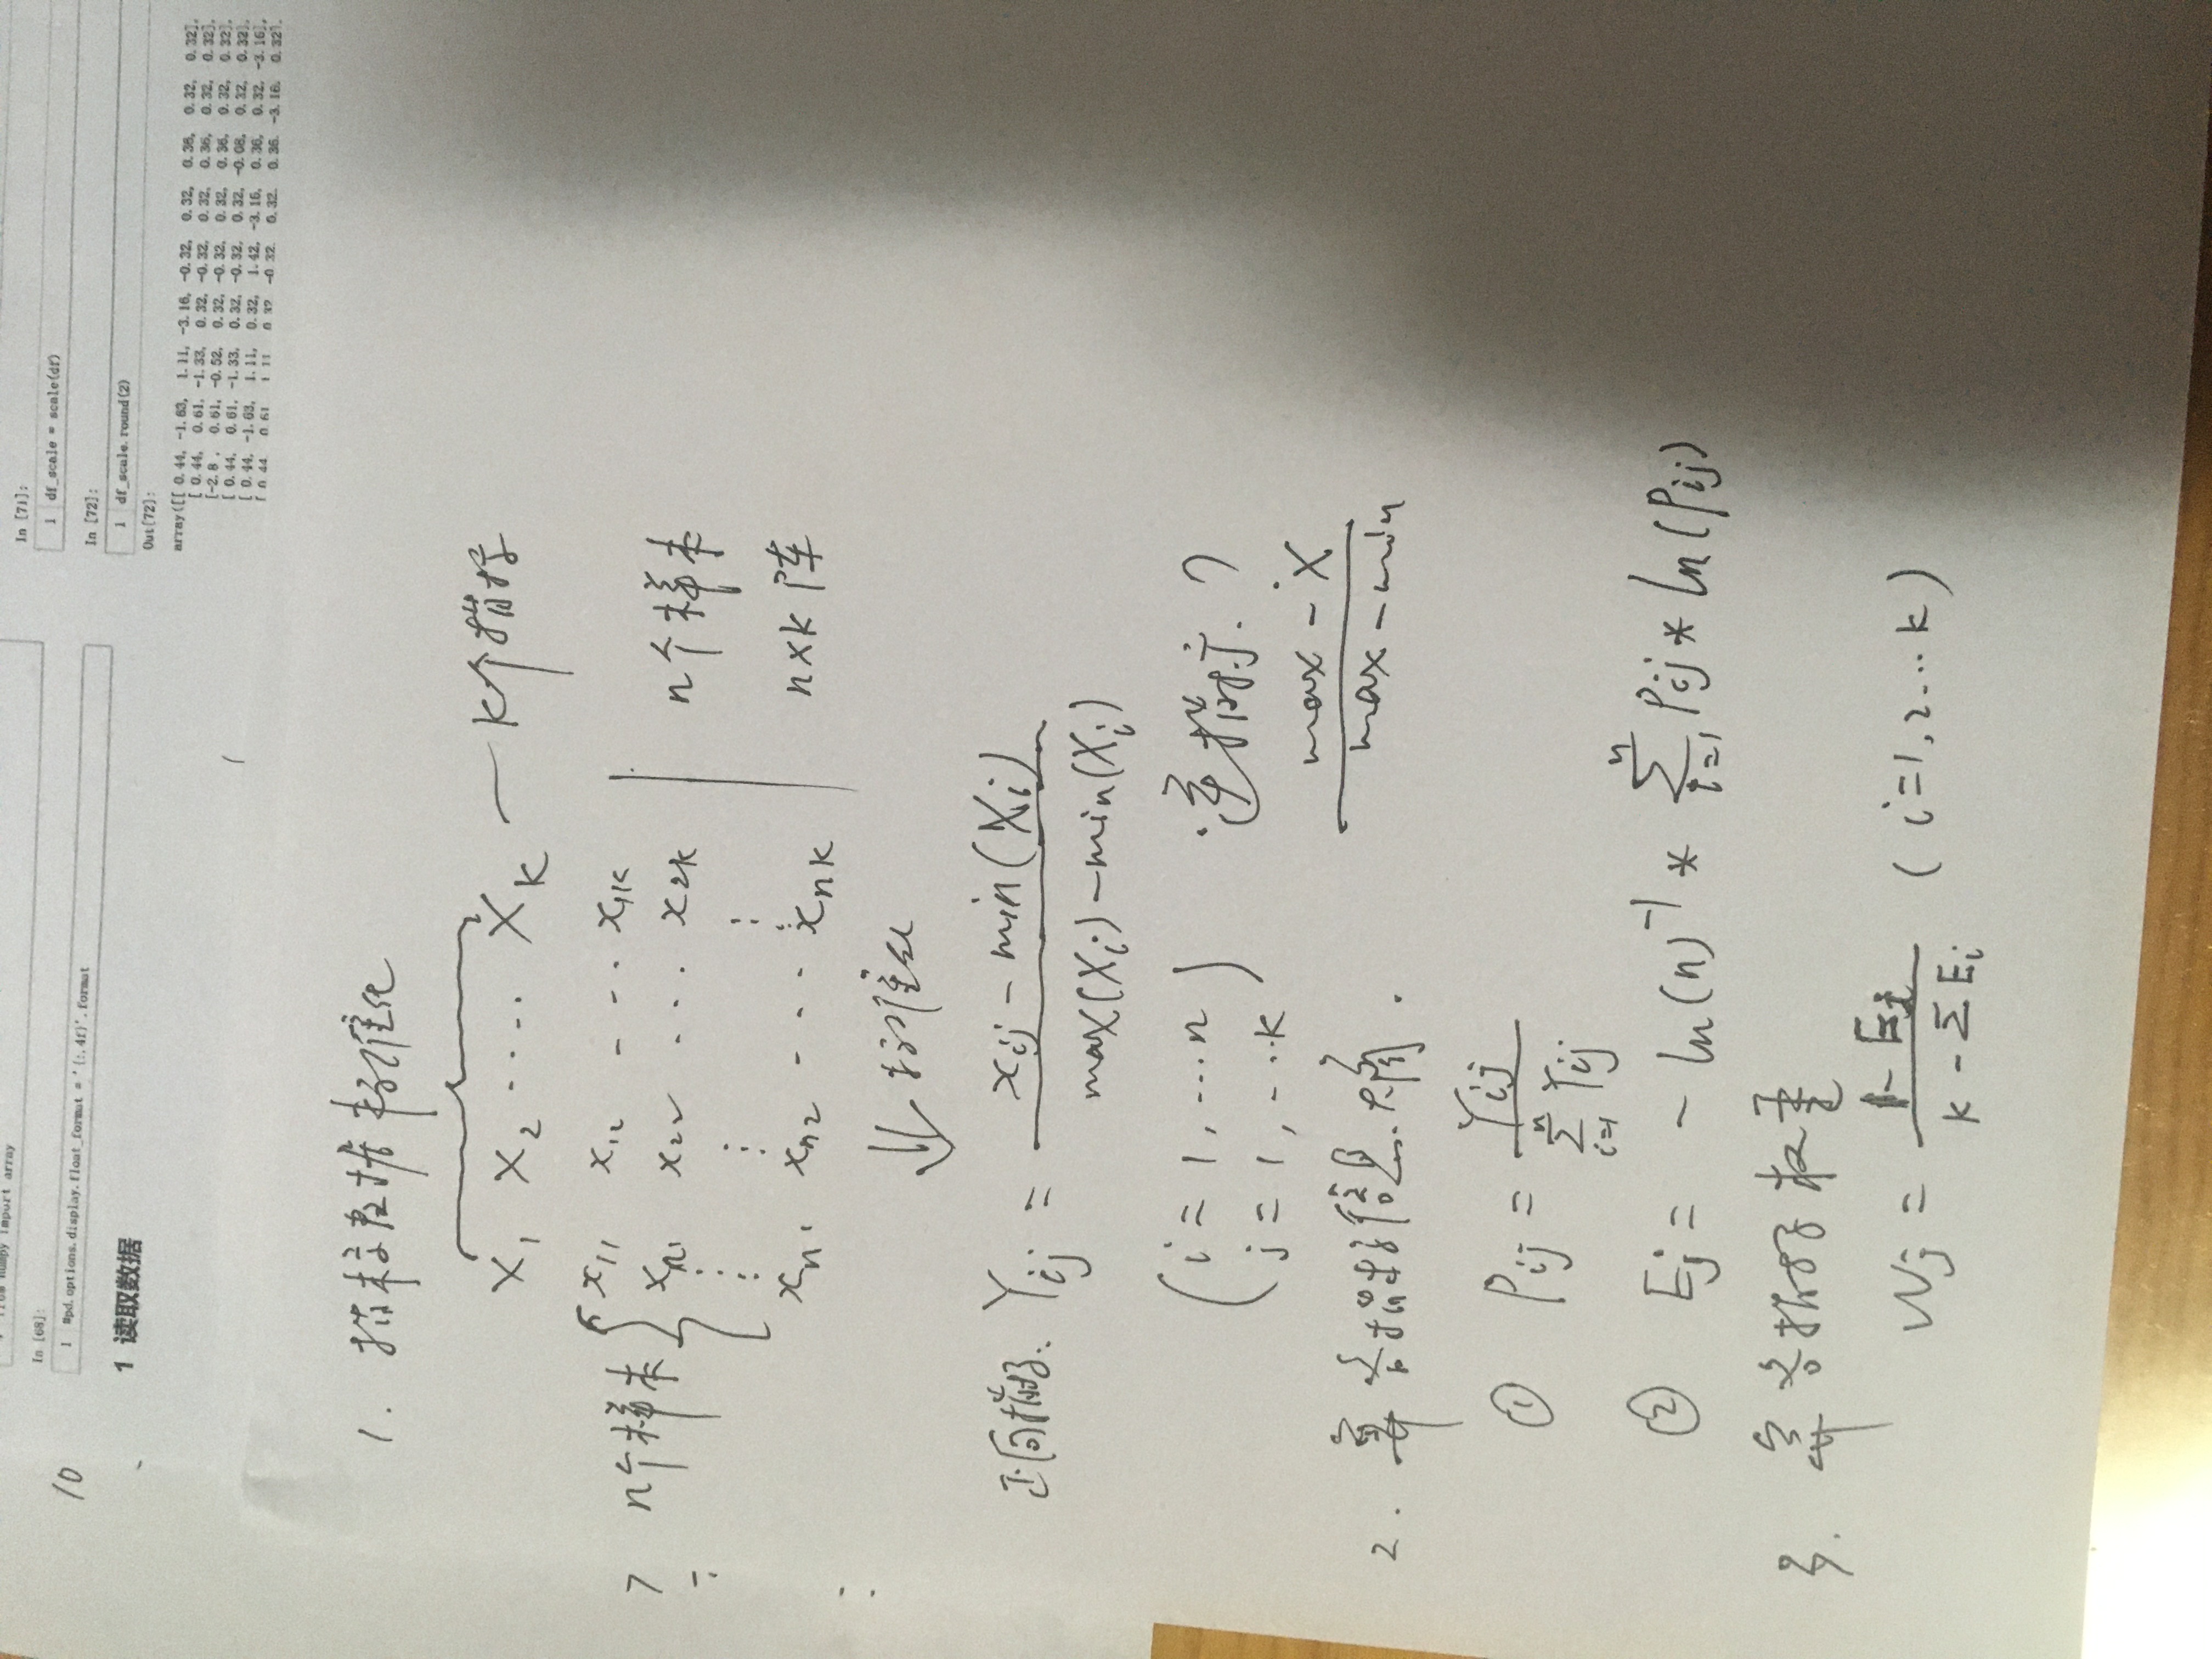 from numpy import array
In [68]:
1 #pd.options.display.float_format = '{:.4f}'.format
1 读取数据
In [71]:
1 df_scale = scale(df)
In [72]:
1 df_scale.round(2)
Out[72]:
array([[ 0.44, -1.63, 1.11, -3.16, -0.32, 0.32, 0.36, 0.32, 0.32],
[ 0.44, 0.61, -1.33, 0.32, -0.32, 0.32, 0.36, 0.32, 0.32],
[-2.8 , 0.61, -0.52, 0.32, -0.32, 0.32, 0.36, 0.32, 0.32],
[ 0.44, 0.61, -1.33, 0.32, -0.32, 0.32, -0.08, 0.32, 0.32],
[ 0.44, -1.63, 1.11, 0.32, 1.42, -3.16, 0.36, 0.32, -3.16],
[ 0.44 0.61 1.11 0.32 -0.32 0.32 0.36 -3.16 0.32],
10
1. 指标数据标准化
X₁ X₂ ... X_k — k个指标
n个样本 { x₁₁ x₁₂ --- x₁k
x₂₁ x₂₂ ... x₂k n个样本
⋮ ⋮ ⋮
x_n1 x_n2 --- x_nk n×k 阵
⇓ 标准化
正向指标: Y_ij = (x_ij - min(X_i)) / (max(X_i) - min(X_i))
(i = 1, ... n
j = 1, ... k)
逆指标:?
(max - X) / (max - min)
2. 算各指标信息熵.
① P_ij = Y_ij / Σ_{i=1}^{n} Y_ij
② E_j = - ln(n)⁻¹ * Σ_{i=1}^{n} P_ij * ln(P_ij)
3. 算各指标权重
W_j = (1 - E_j) / (k - ΣE_i) (i=1,2...k)